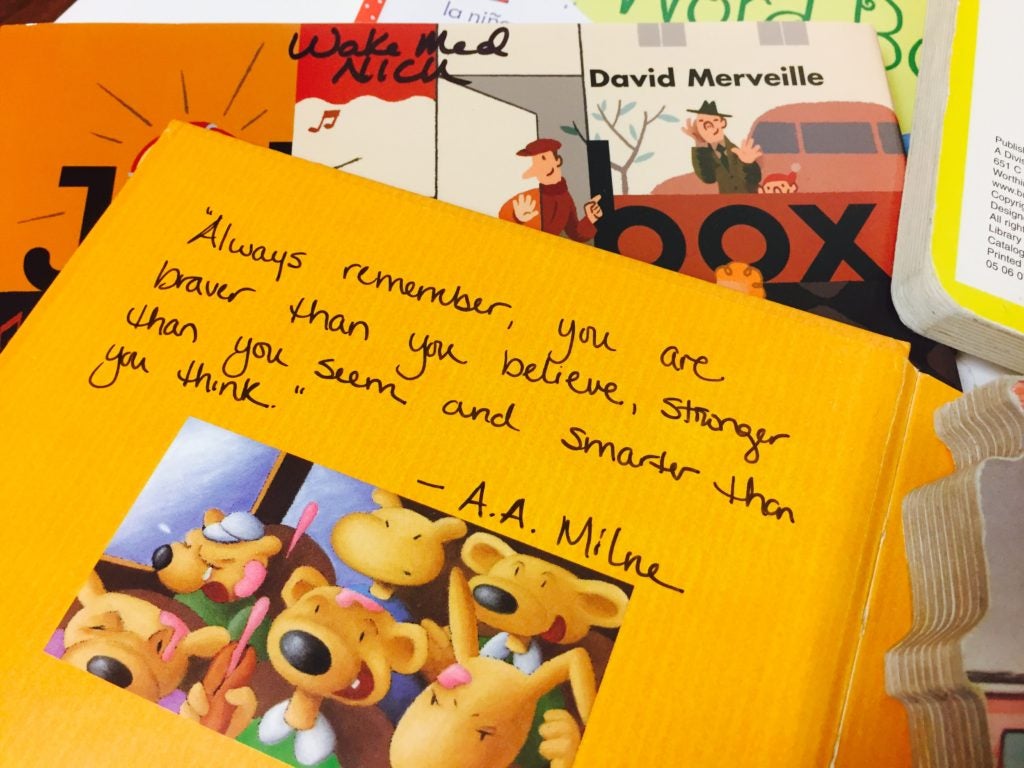 la niñ
Word B
Wake Med
NICU
David Merveille
J
box
"Always remember, you are
braver than you believe, stronger
than you seem and smarter than
you think."
- A.A. Milne
Publis
A Divis
651 C
Worthi
www.b
Copyrig
Design
All right
Library
Catalog
Printed
05 06 0